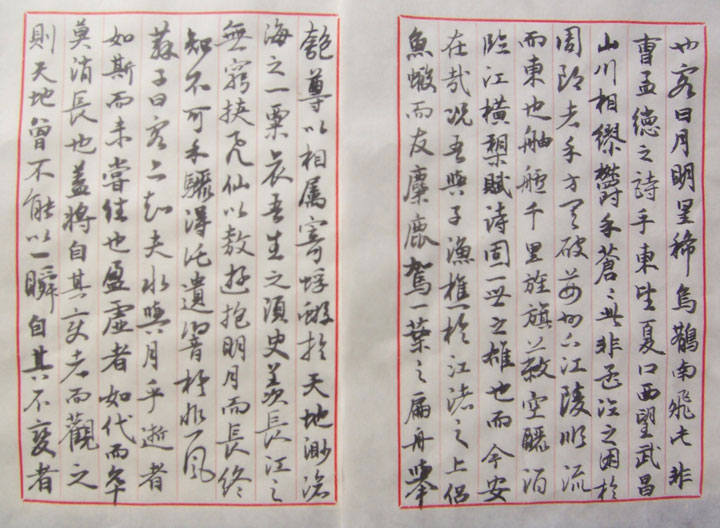 也客曰月明星稀烏鵲南飛此非
曹孟德之詩乎東望夏口西望武昌
山川相繆鬱乎蒼々此非孟德之困於
周郎者乎方其破荊州下江陵順流
而東也舳艫千里旌旗蔽空釃酒
臨江橫槊賦詩固一世之雄也而今安
在哉況吾與子漁樵於江渚之上侶
魚蝦而友麋鹿駕一葉之扁舟舉
匏尊以相屬寄蜉蝣於天地渺滄
海之一粟哀吾生之須臾羨長江之
無窮挾飛仙以遨遊抱明月而長終
知不可乎驟得託遺響於悲風
蘇子曰客亦知夫水與月乎逝者
如斯而未嘗往也盈虛者如彼而卒
莫消長也蓋將自其變者而觀之
則天地曾不能以一瞬自其不變者